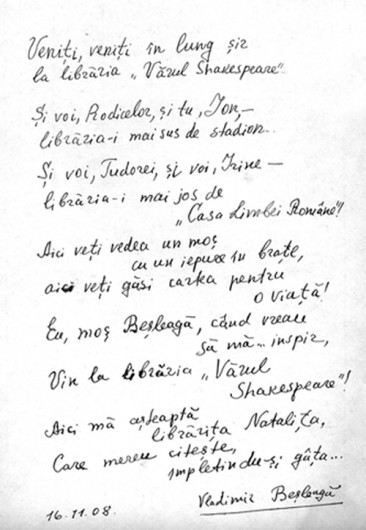 Veniți, veniți în lung șir
la librăria „Vărul Shakespeare".
Și voi, Rodicelor, și tu, Ion, —
librăria-i mai sus de stadion.
Și voi, Tudorei, și voi, Irine —
librăria-i mai jos de
„Casa Limbei Române"!
Aici veți vedea un moș
cu un iepure în brațe,
aici veți găsi cartea pentru
o viață!
Eu, moș Beșleagă, când vreau
să mă... inspir,
Vin la librăria „Vărul
Shakespeare"!
Aici mă așteaptă
librărița Natalița,
Care mereu citește,
împletindu-și gâța...
16.11.08.
Vladimir Beșleagă